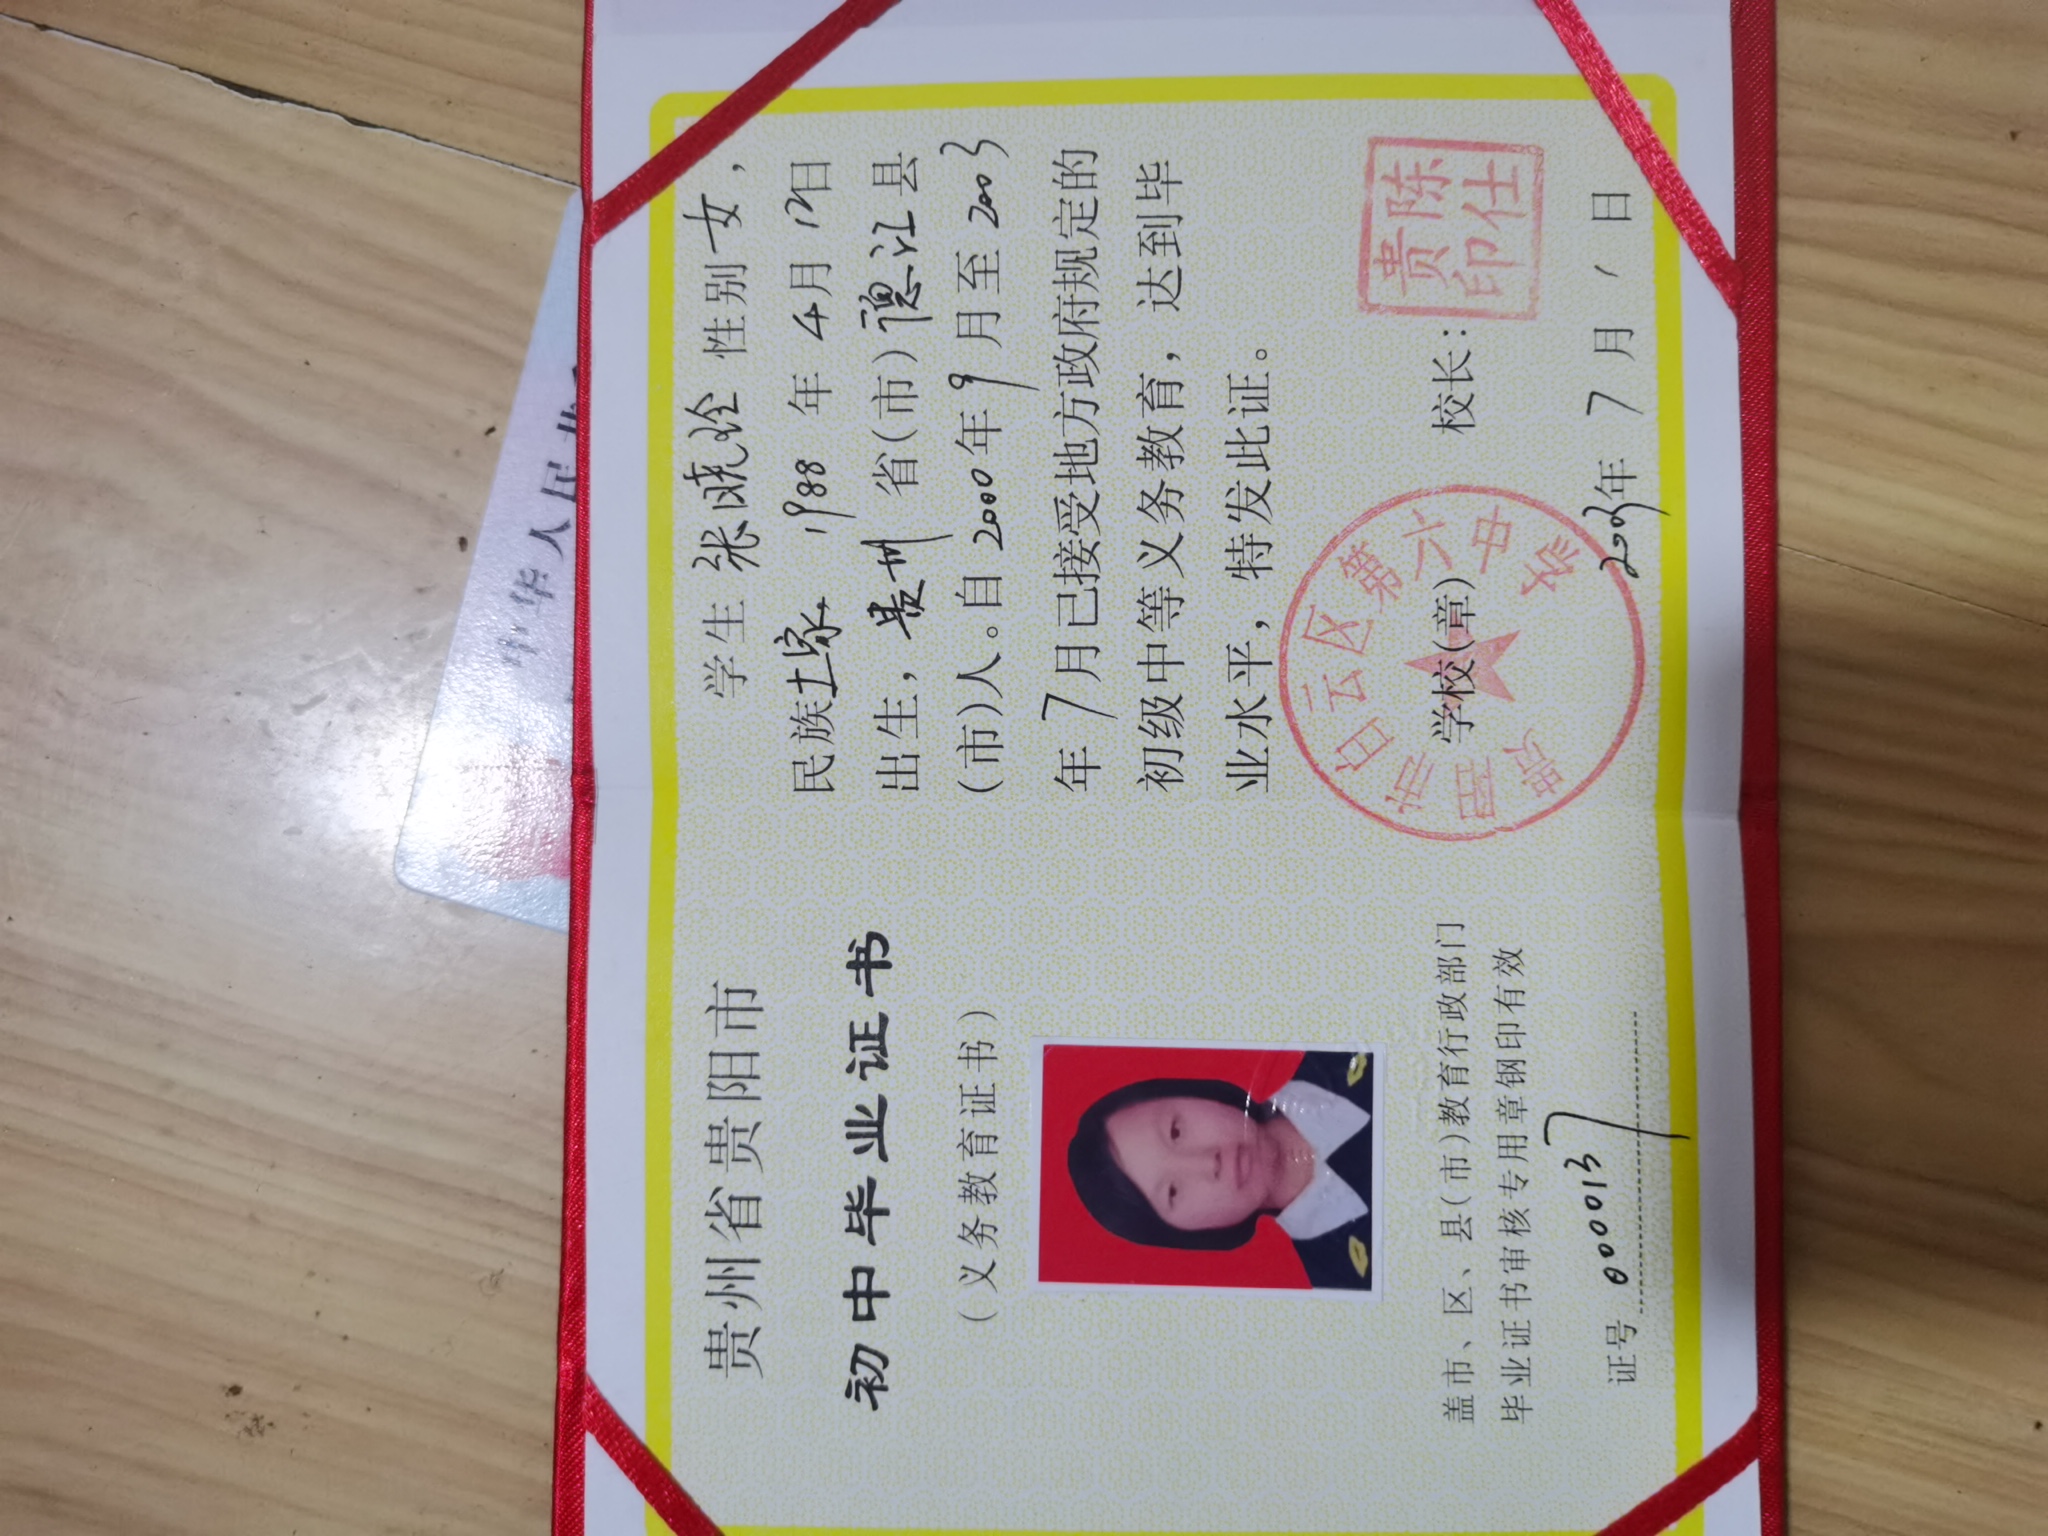 中华人民共
贵州省贵阳市
初中毕业证书
(义务教育证书)
盖市、区、县(市)教育行政部门
毕业证书审核专用章钢印有效
证号 0000137
学生 张晓玲 性别 女,
民族土家, 1988 年 4月 12日
出生, 贵州 省(市) 德江 县
(市)人。自 2000 年 9 月至 2003
年 7 月已接受地方政府规定的
初级中等义务教育, 达到毕
业水平, 特发此证。
学校(章) 校长:
贵阳市白云区第六中学
陈仕贵印
2003年 7 月 1 日